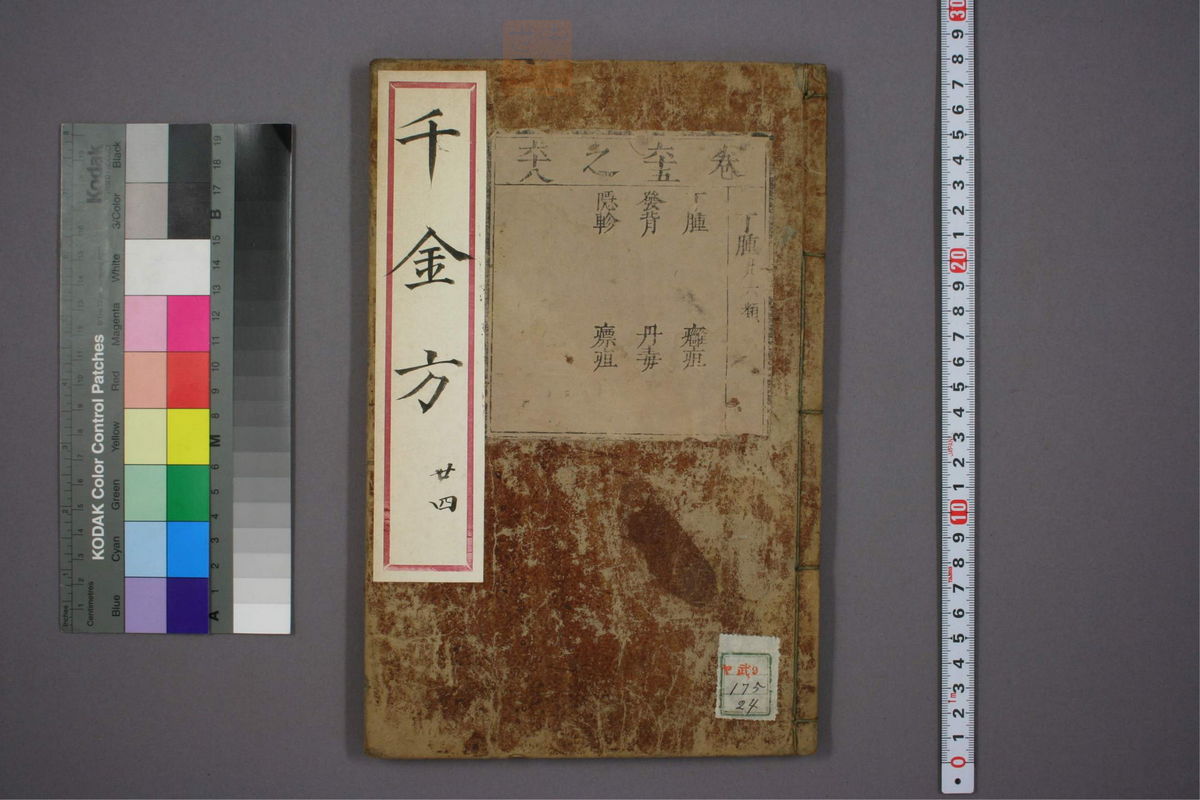 千金方 廿四
卷六十五之六十八
丁腫廿一類
丁腫 癰疽
發背 丹毒
隠軫 瘭疽
武
175
24
Kodak
KODAK Color Control Patches
Blue Cyan Green Yellow Red Magenta White 3/Color Black
Inches
Centimetres
A 1 2 3 4 5 6 M 8 9 10 11 12 13 14 15 B 17 18 19
0 1 2 3 4 5 6 7 8 9 10 1 2 3 4 5 6 7 8 9 20 1 2 3 4 5 6 7 8 9 30